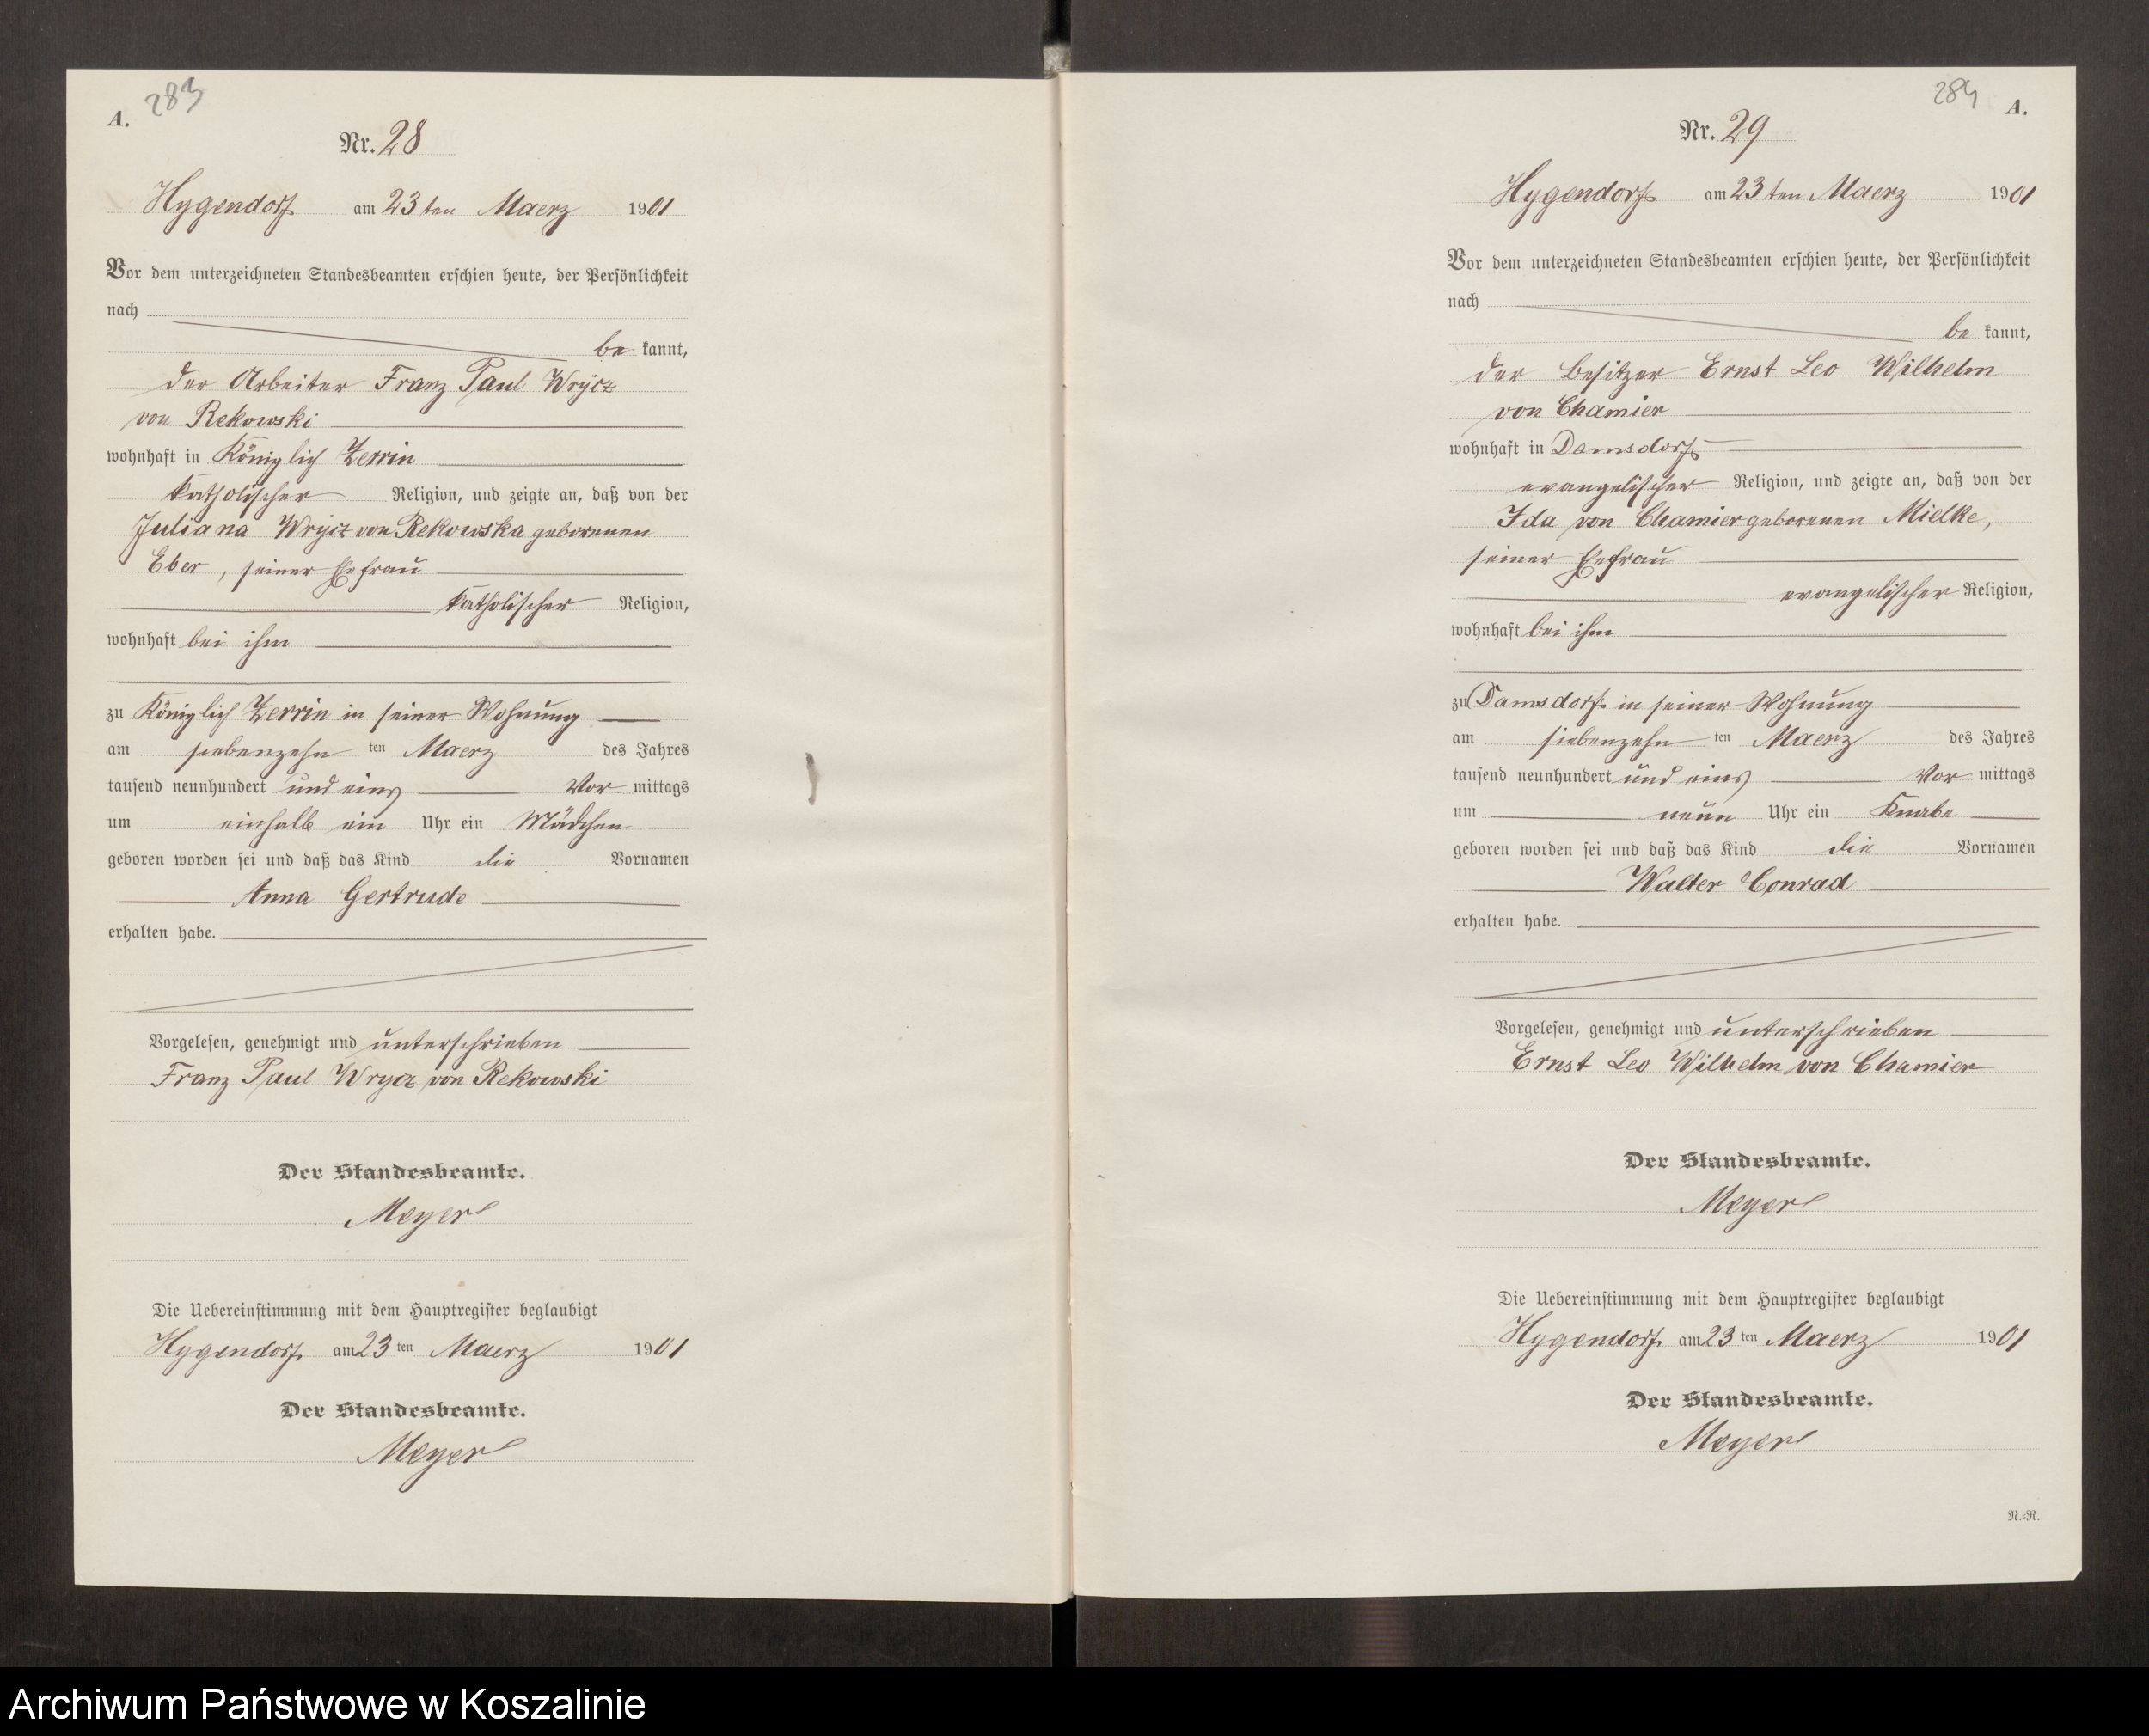 A.
283
Nr. 28
Hygendorf am 23 ten Maerz 1901
Vor dem unterzeichneten Standesbeamten erschien heute, der Persönlichkeit
nach
be kannt,
der Arbeiter Franz Paul Wrycz
von Rekowski
wohnhaft in Königlich Zerrin
katholischer Religion, und zeigte an, daß von der
Juliana Wrycz von Rekowska geborenen
Eber, seiner Ehefrau
katholischer Religion,
wohnhaft bei ihm
zu Königlich Zerrin in seiner Wohnung
am siebenzehn ten Maerz des Jahres
tausend neunhundert und eins Vor mittags
um einhalb ein Uhr ein Mädchen
geboren worden sei und daß das Kind die Vornamen
Anna Gertrude
erhalten habe.
Vorgelesen, genehmigt und unterschrieben
Franz Paul Wrycz von Rekowski
Der Standesbeamte.
Meyer
Die Uebereinstimmung mit dem Hauptregister beglaubigt
Hygendorf am 23 ten Maerz 1901
Der Standesbeamte.
Meyer
284
A.
Nr. 29
Hygendorf am 23 ten Maerz 1901
Vor dem unterzeichneten Standesbeamten erschien heute, der Persönlichkeit
nach
be kannt,
der Besitzer Ernst Leo Wilhelm
von Chamier
wohnhaft in Damsdorf
evangelischer Religion, und zeigte an, daß von der
Ida von Chamier geborenen Mielke,
seiner Ehefrau
evangelischer Religion,
wohnhaft bei ihm
zu Damsdorf in seiner Wohnung
am siebenzehn ten Maerz des Jahres
tausend neunhundert und eins Vor mittags
um neun Uhr ein Knabe
geboren worden sei und daß das Kind die Vornamen
Walter Conrad
erhalten habe.
Vorgelesen, genehmigt und unterschrieben
Ernst Leo Wilhelm von Chamier
Der Standesbeamte.
Meyer
Die Uebereinstimmung mit dem Hauptregister beglaubigt
Hygendorf am 23 ten Maerz 1901
Der Standesbeamte.
Meyer
N.=N.
Archiwum Państwowe w Koszalinie